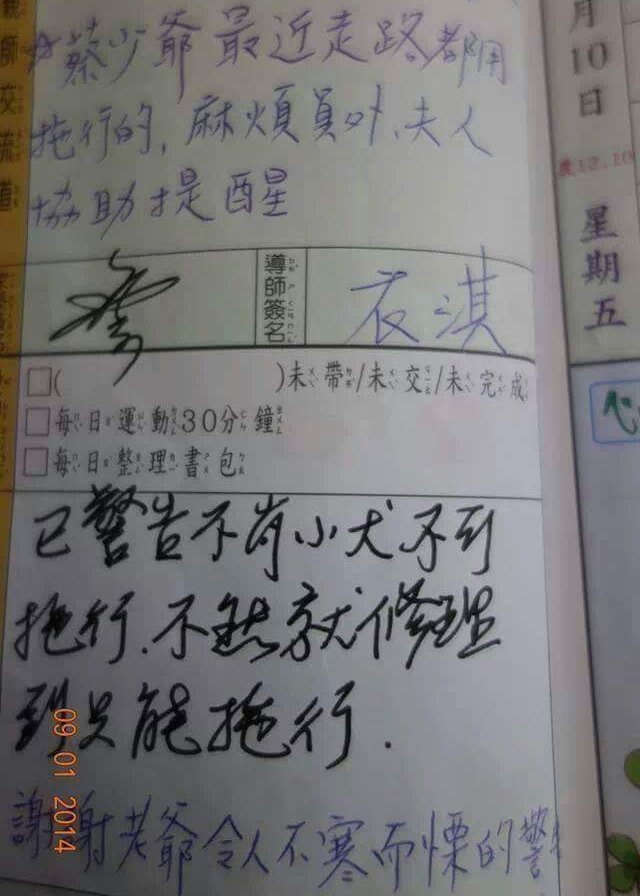 親師交流道
☆蔡少爺最近走路都用
拖行的，麻煩員外、夫人
協助提醒
導師簽名
衣淇
□( )未帶/未交/未完成
□每日運動30分鐘
□每日整理書包
已警告不肖小犬不可
拖行.不然就修理
到只能拖行.
謝謝老爺令人不寒而慄的警
月10日
農12.10
星期五
09 01 2014